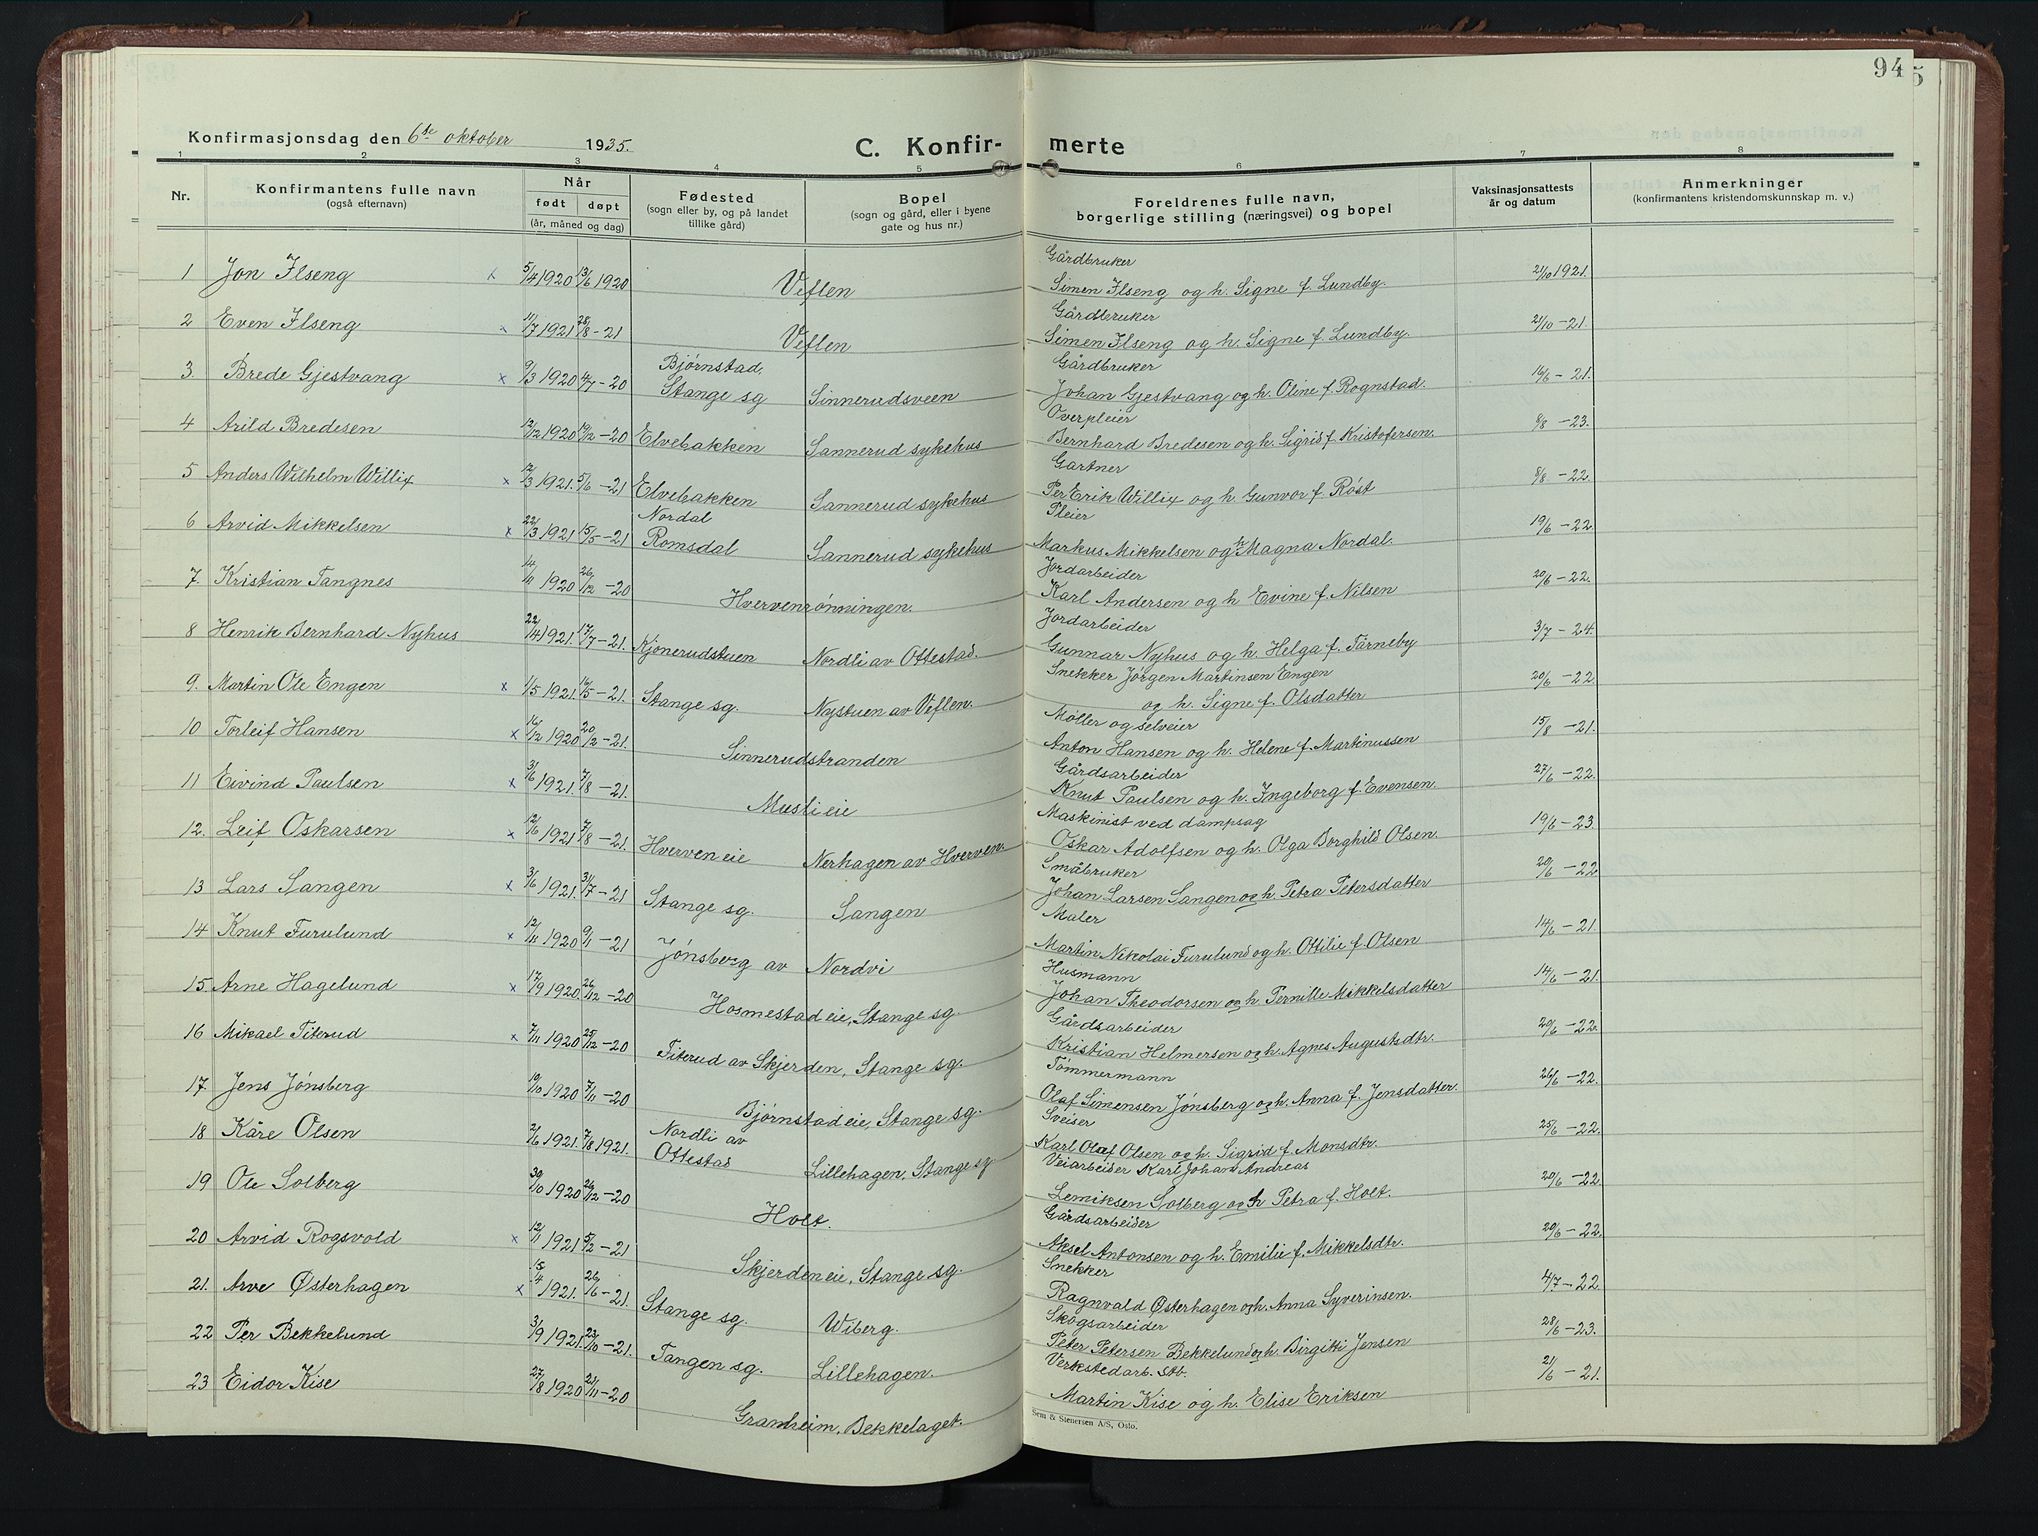 94
Konfirmasjonsdag den 6te oktober 1935.
C. Konfirmerte
1 2 3 4 5 6 7 8
Nr.
Konfirmantens fulle navn (også efternavn)
Når født døpt (år, måned og dag)
Fødested (sogn eller by, og på landet tillike gård)
Bopel (sogn og gård, eller i byene gate og hus nr.)
Foreldrenes fulle navn, borgerlige stilling (næringsvei) og bopel
Vaksinasjonsattests år og datum
Anmerkninger (konfirmantens kristendomskunnskap m. v.)
1 Jon Ilseng x 5/4 1920 13/6 1920 Veflen Gårdbruker Simen Ilseng og h. Signe f. Lundby. 21/10 1921.
2 Even Ilseng x 11/7 1921 28/8-21 Veflen Gårdbruker Simen Ilseng og h. Signe f. Lundby. 21/10-21.
3. Brede Gjestvang x 9/3 1920 -20 Bjørnstad, Stange sg Sinnerudsveen Gårdbruker Johan Gjestvang og h. Oline f. Rognstad. 16/6-21.
4 Arild Bredesen 1920 -20 Elvebakken Sannerud sykehus Overpleier Bernhard Bredesen og h. Sigrid f. Kristofersen. 8/8-23.
5 Anders Wilhelm Willix x 12/3 1921. 5/6-21 Elvebakken Sannerud sykehus Gartner Per Erik Willix og h. Gunvor f. Røst 8/8-22.
6 Arvid Mikkelsen x 22/3 1921 15/5-21 Nordal Romsdal Sannerud sykehus Pleier Markus Mikkelsen og h. Magna Nordal. 19/6-22.
7. Kristian Tangnes 14/11 1920 26/12-20 Hvervenrønningen. Jordarbeider Karl Andersen og h Evine f. Nilsen 20/6-22.
8 Henrik Bernhard Nyhus 22/4 1921. 17/7-21. Kjonerudstuen Nordli av Ottestad. Jordarbeider Gunnar Nyhus og h. Helga f. Tårneby 3/7-24.
9. Martin Ole Engen x 1/5 1921. 16/5-21. Stange sg. Nystuen av Veflen. Snekker Jørgen Martinsen Engen og h. Signe f. Olsdatter 20/6-22.
10 Torleif Hansen x 16/12 1920 20/2-21. Sinnerudstranden Møller og selveier Anton Hansen og h. Helene f. Martinussen 15/8-21.
11 Eivind Paulsen x 3/6 1921. 7/8-21. Musli eie Gårdsarbeider Knut Paulsen og h. Ingeborg f. Evensen. 27/6-22.
12. Leif Oskarsen x 12/6 1921 7/8-21. Hverven eie Nerhagen av Hverven. Maskinist ved dampsag Oskar Adolfsen og h. Olga Borghild Olsen. 19/6-23.
13 Lars Sangen x 3/6 1921. 31/7-21 Stange sg. Sangen Småbruker Johan Larsen Sangen og h. Petra Petersdatter 20/6-22.
14 Knut Furulund x 12/11 1920 9/1-21 Jønsberg av Nordvi Maler Martin Nikolai Furulund og h. Ottilie f. Olsen 14/6-21.
15. Arne Hagelund x 17/9 1920. 26/12-20 Hosmestad eie, Stange sg. Husmann Johan Theodorsen og h. Pernille Mikkelsdatter 14/6-21.
16 Mikael Titerud x 7/11 1920 25/12-20 Titerud av Skjerden, Stange sg. Gårdsarbeider Kristian Helmersen og h. Agnes Augustsdtr. 20/6-22.
17. Jens Jønsberg 10/10 1920 7/11-20 Bjørnstad eie, Stange sg. Tømmermann Olaf Simensen Jønsberg og h. Anna f. Jensdatter. 26/6-22.
18 Kåre Olsen 1921. 7/8 1921. Nordli av Ottestad Lillehagen, Stange sg. Sveiser Karl Olaf Olsen og h. Sigrid f. Monsdtr. 25/6-22.
19 Ole Solberg 30/10 1920 26/12-20 Holt. Veiarbeider Karl Johan Andreas Lemiksen Solberg og h Petra f. Holt. 20/6-22.
20 Arvid Rogsvold x 12/1 1921 5/2-21 Skjerden eie, Stange sg. Gårdsarbeider Aksel Antonsen og h. Emilie f. Mikkelsdtr. 20/6-22.
21. Arve Østerhagen x 15/4 1921. 26/6-21. Stange sg. Wiberg. Snekker Ragnvald Østerhagen og h. Anna Syverinsen. 4/7-22.
22 Per Bekkelund 3/9 1921. 23/10-21. Tangen sg. Lillehagen. Skogsarbeider Peter Petersen Bekkelund og h. Birgitti Jensen 28/6-23.
23 Eidor Kise 27/8 1920 21/11-20 Granheim, Bekkelaget. Verkstedarb. Stb. Martin Kise og h. Elise Eriksen 21/6-21.
Sem & Stenersen A/S, Oslo.